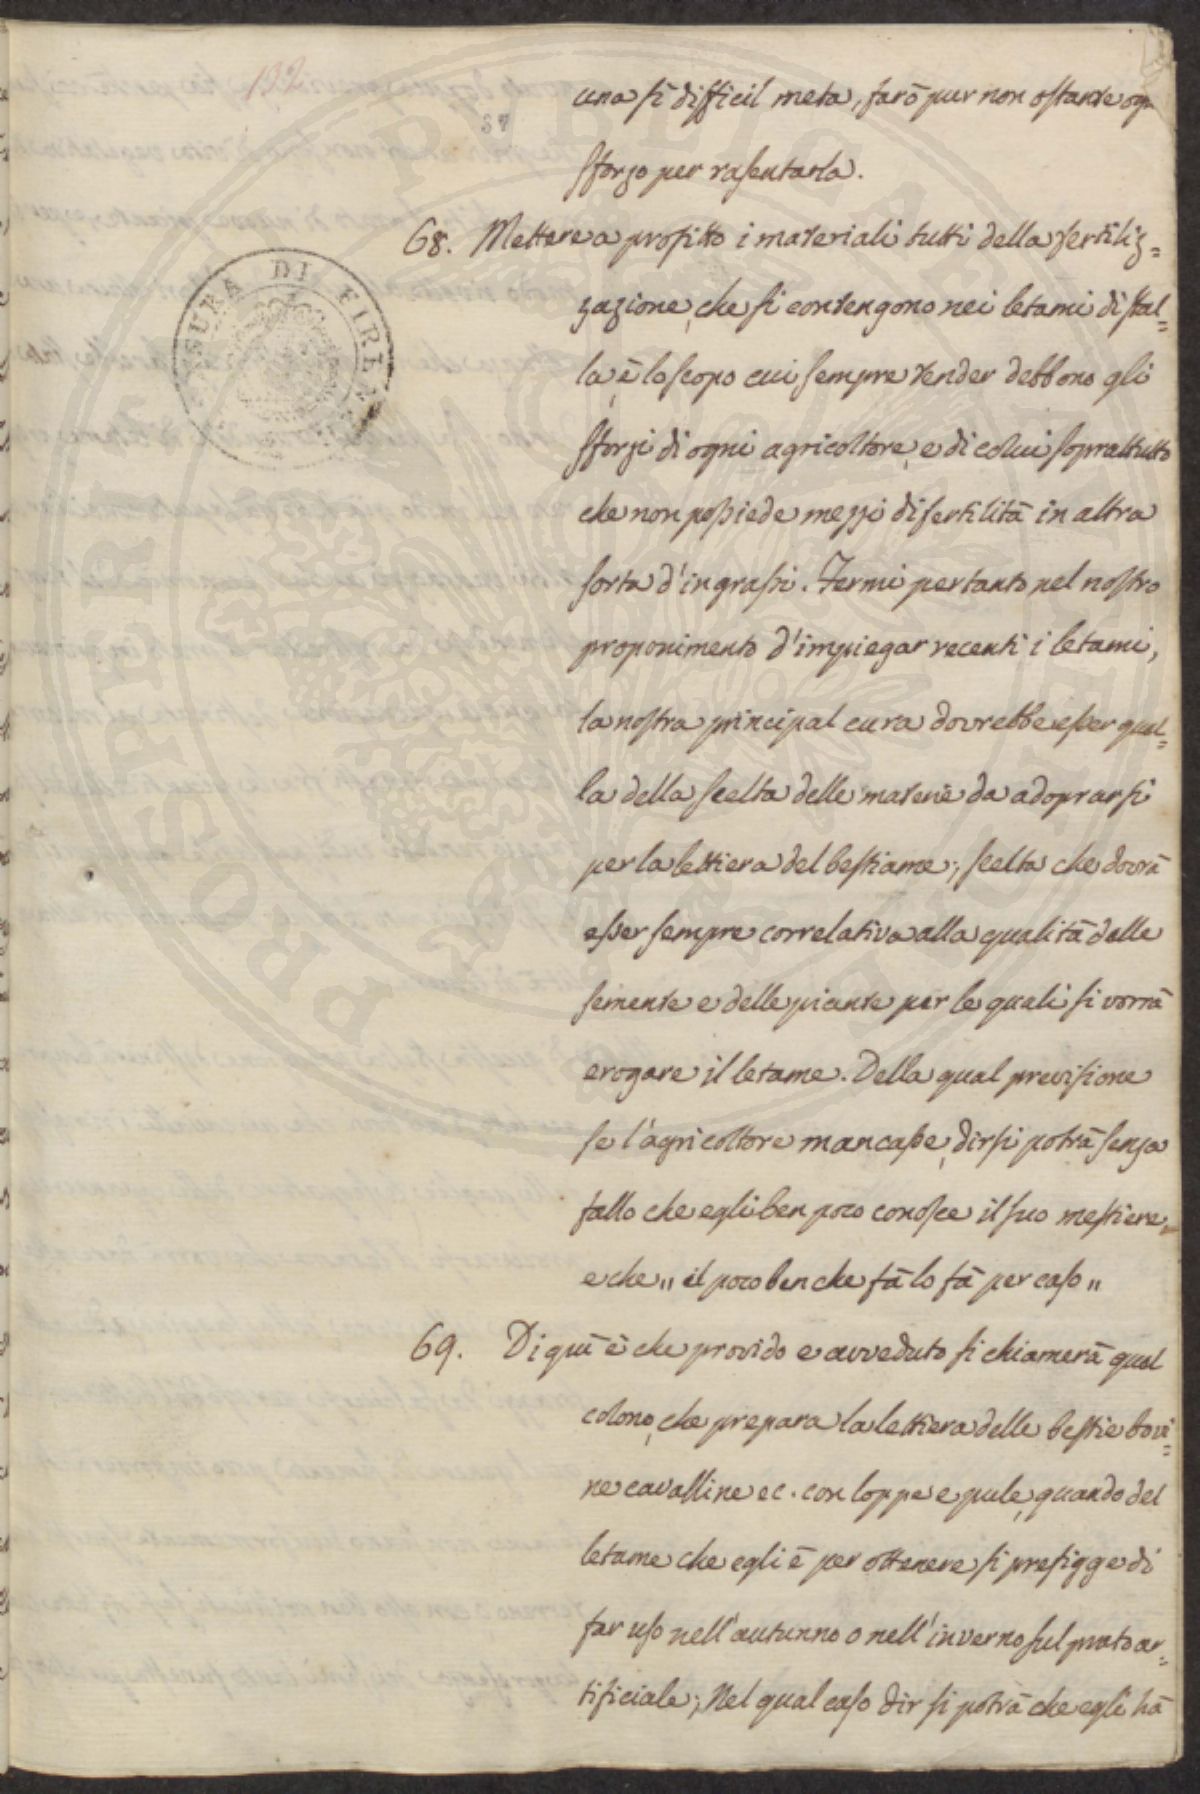 132
37
una sì difficil meta, farò pur non ostante ogn
sforzo per rasentarla.
68. Mettere a profitto i materiali tutti della fertiliz=
zazione, che si contengono nei letami di stal=
la, è lo scopo cui sempre tender debbono gli
sforzi di ogni agricoltore, e di colui soprattutto
che non possiede mezzi di fertilità in altra
sorta d'ingrassi. Fermi pertanto nel nostro
proponimento d'impiegar recenti i letami,
la nostra principal cura dovrebbe esser quel=
la della scelta delle materie da adoprarsi
per la lettiera del bestiame; scelta che dovrà
esser sempre correlativa alla qualità delle
semente e delle piante per le quali si vorrà
erogare il letame. Della qual previsione
se l'agricoltore mancasse, dirsi potrà senza
fallo che egli ben poco conosce il suo mestiere,
e che „ il poco ben che fà lo fà per caso „
69. Di quì è che provido e avveduto si chiamerà quel
colono, che prepara la lettiera delle bestie bovi=
ne cavalline ec. con loppe e pule, quando del
letame che egli è per ottenere si prefigge di
far uso nell'autunno o nell'inverno sul prato ar=
tificiale; Nel qual caso dir si potrà che egli hà
PROSPERITAS PUBLICAE
CENSURA DI FIRENZE